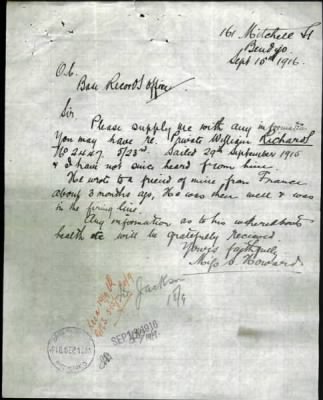 161 Mitchell St
Bendigo
Sept 15th 1916.
O.C.
Base Records Office
Sir
Please supply me with any information
You may have re. Private William Richards
No 2447. 5/23rd. Sailed 29th September 1915
& I have not since heard from him.
He wrote to a friend of mine from France
about 3 months ago, He was then well & was
in the firing line.
Any information as to his whereabouts
health etc will be gratefully received
Yours faithfully
Miss S. Howard
Jackson
SEP 1916